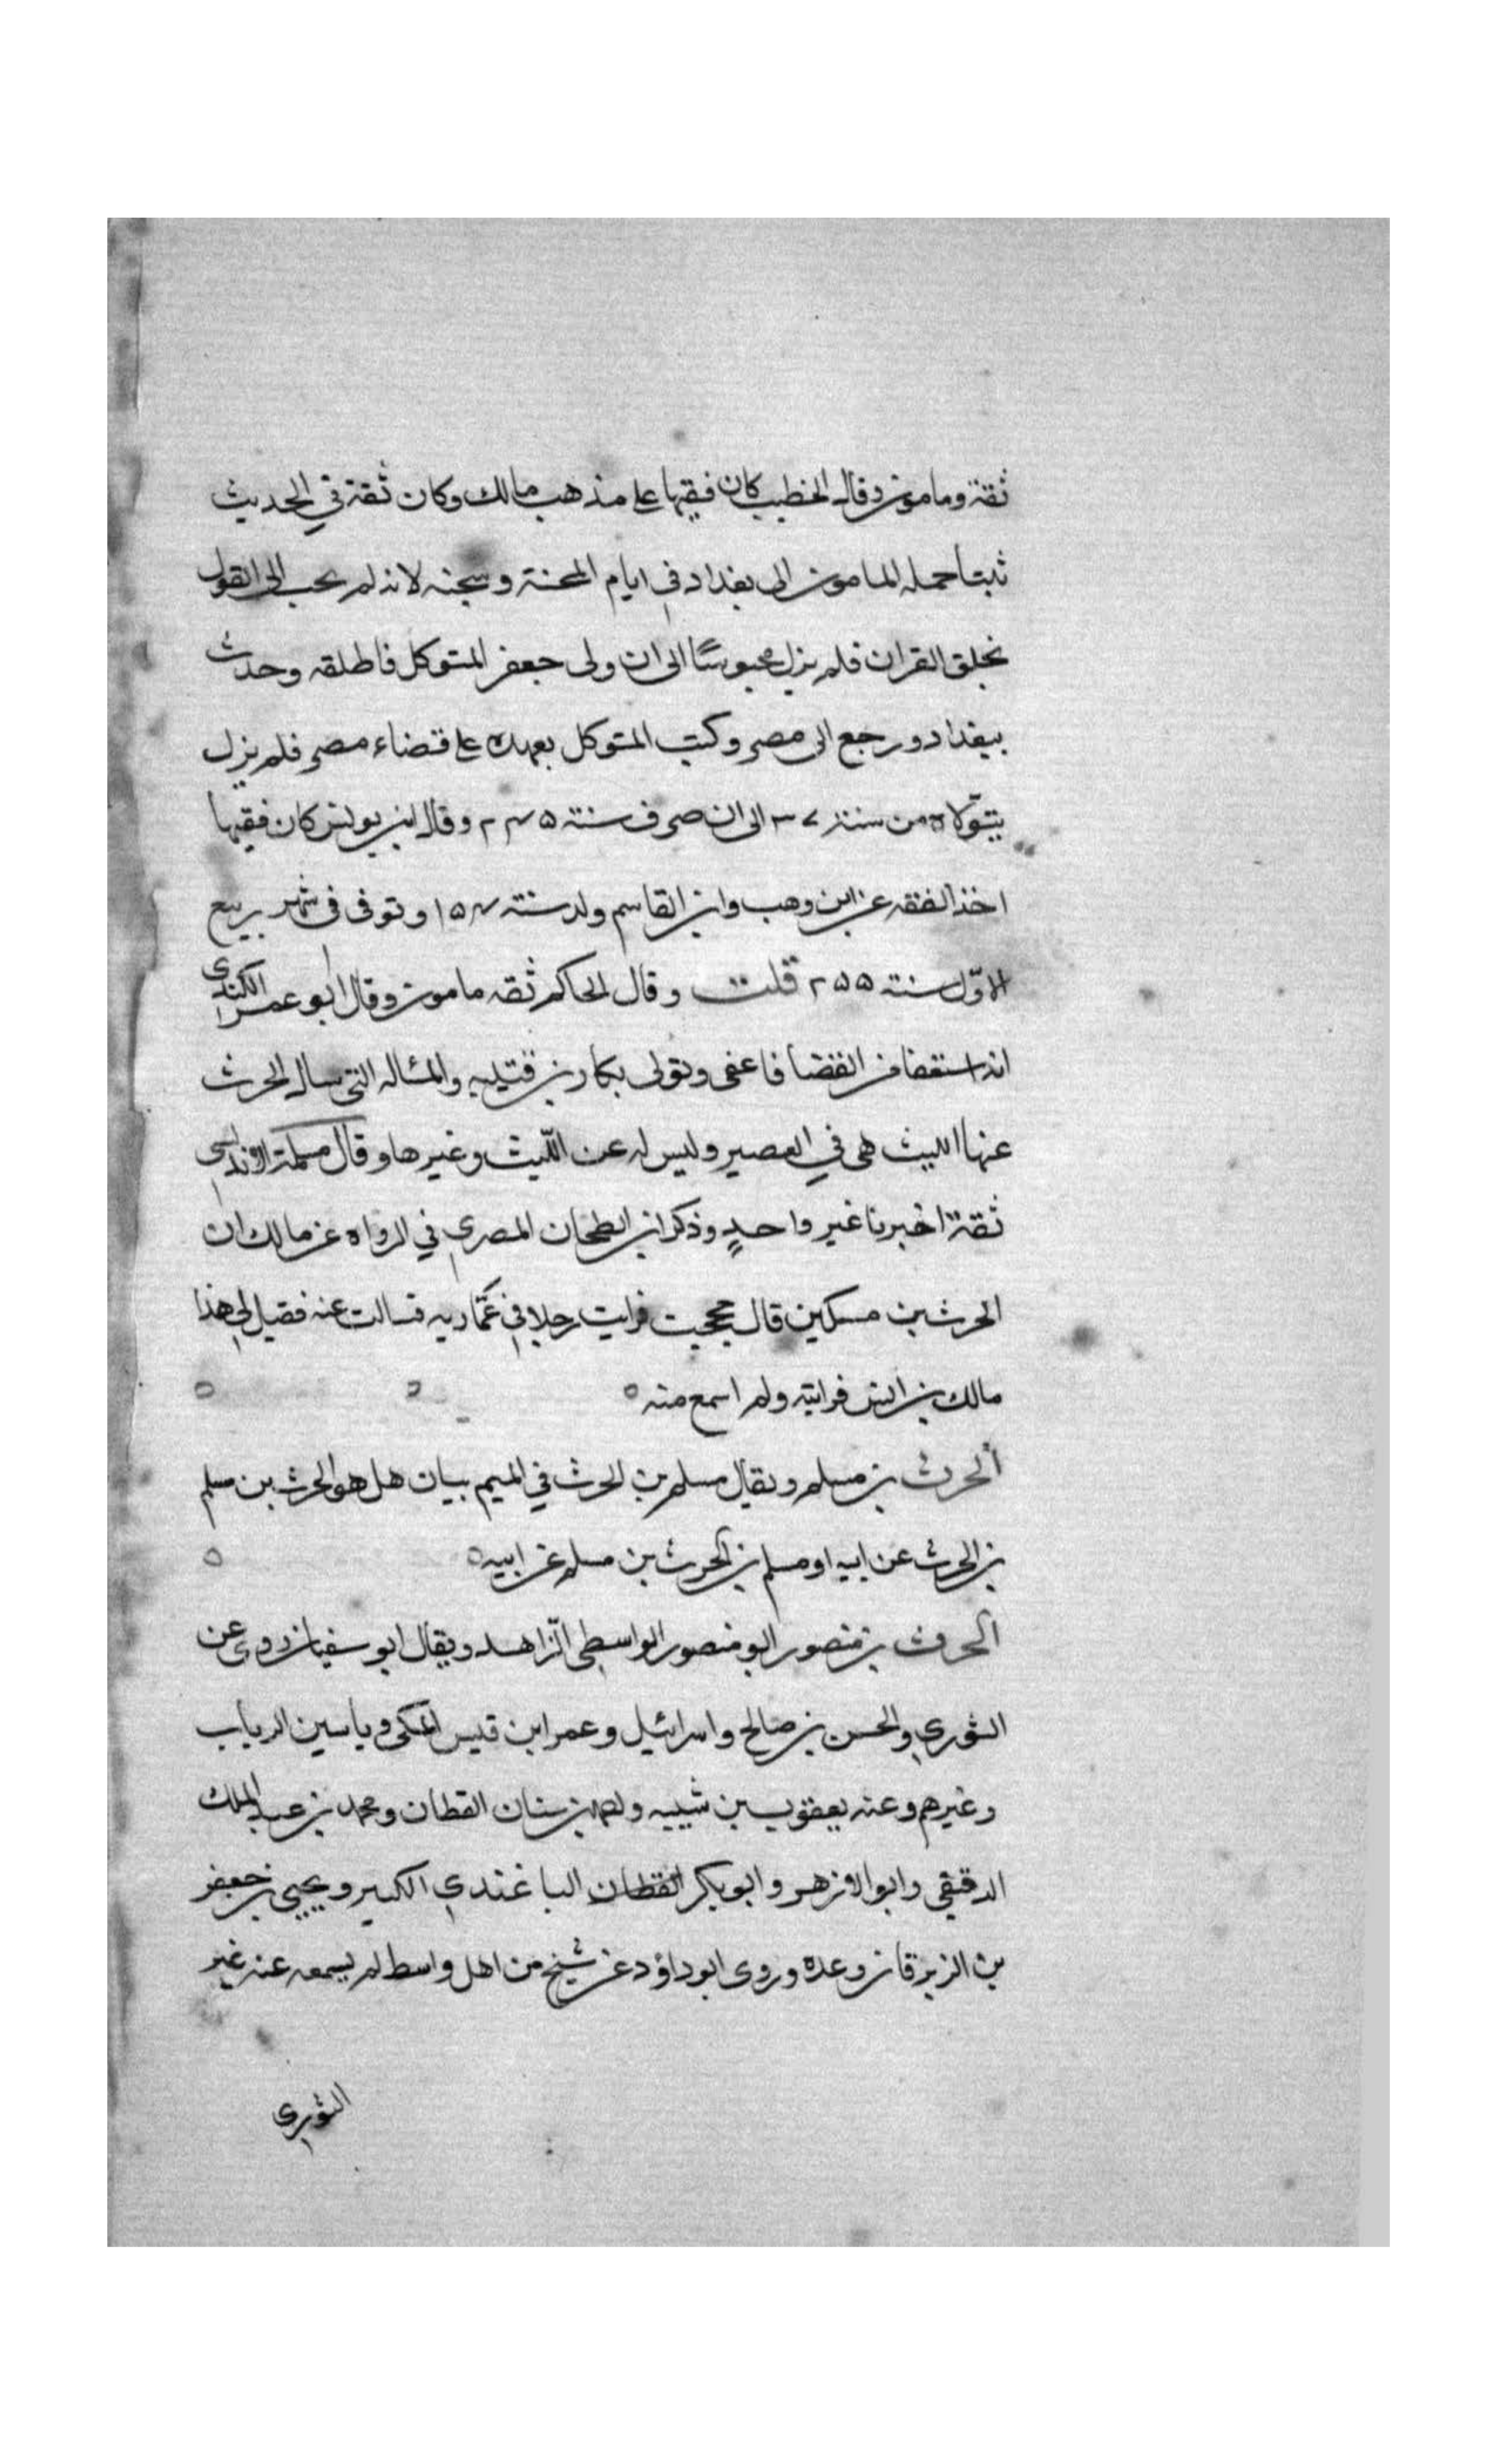 ثقة ومامون وقال الخطيب كان فقيها على مذهب مالك وكان ثقة في الحديث
ثبتا حمله المامون الى بغداد في ايام المحنة وسجنه لانه لم يجب الى القول
بخلق القران فلم يزل محبوسًا الى ان ولى جعفر المتوكل فاطلقه وحدث
ببغداد ورجع الى مصر وكتب المتوكل بعهده على قضاء مصر فلم يزل
يتوّلاه من سنة ٣٧ الى ان صرف سنة ٢٤٥ وقال ابن يونس كان فقيها
اخذ الفقه عن ابن وهب وابن القاسم ولد سنة ١٥٤ وتوفى فى شهر ربيع
الاوّل سنة ٢٥٥ قلت وقال الحاكم ثقه مامون وقال ابو عمر الكندى
انه استعفا من القضا فاعفى وتولى بكار بن قتيبه والمسالة التى سال الحرث
عنها الليث هى في العصير وليس له عن اللّيث وغيرها وقال مسلمة الاندلسى
ثقة اخبرنا غير واحدٍ وذكر ابن الطحان المصرى في الرواه عن مالك ان
الحرث بن مسكين قال حججت فرايت رجلا في عمّاريه فسالت عنه فقيل لى هذا
مالك بن انس فرايته ولم اسمع منه
الحرث بن مسلم ويقال مسلم بن الحرث في الميم بيان هل هو الحرث بن مسلم
بن الحرث عن ابيه او مسلم بن الحرث بن مسلم عن ابيه
الحرث بن منصور ابو منصور الواسطى الزّاهد ويقال ابو سفيان روى عن
الثورى والحسن بن صالح واسرائيل وعمر ابن قيس المكى وياسين الزيات
وغيرهم وعنه يعقوب بن شيبه واحمد بن سنان القطان ومحمد بن عبد الملك
الدقيقى وابو الازهر وابو بكر القطان الباغندى الكبير ويحيى بن جعفر
بن الزبرقان وعده وروى ابو داؤد عن شيخ من اهل واسط لم يسمعه عنه غير
الثورى